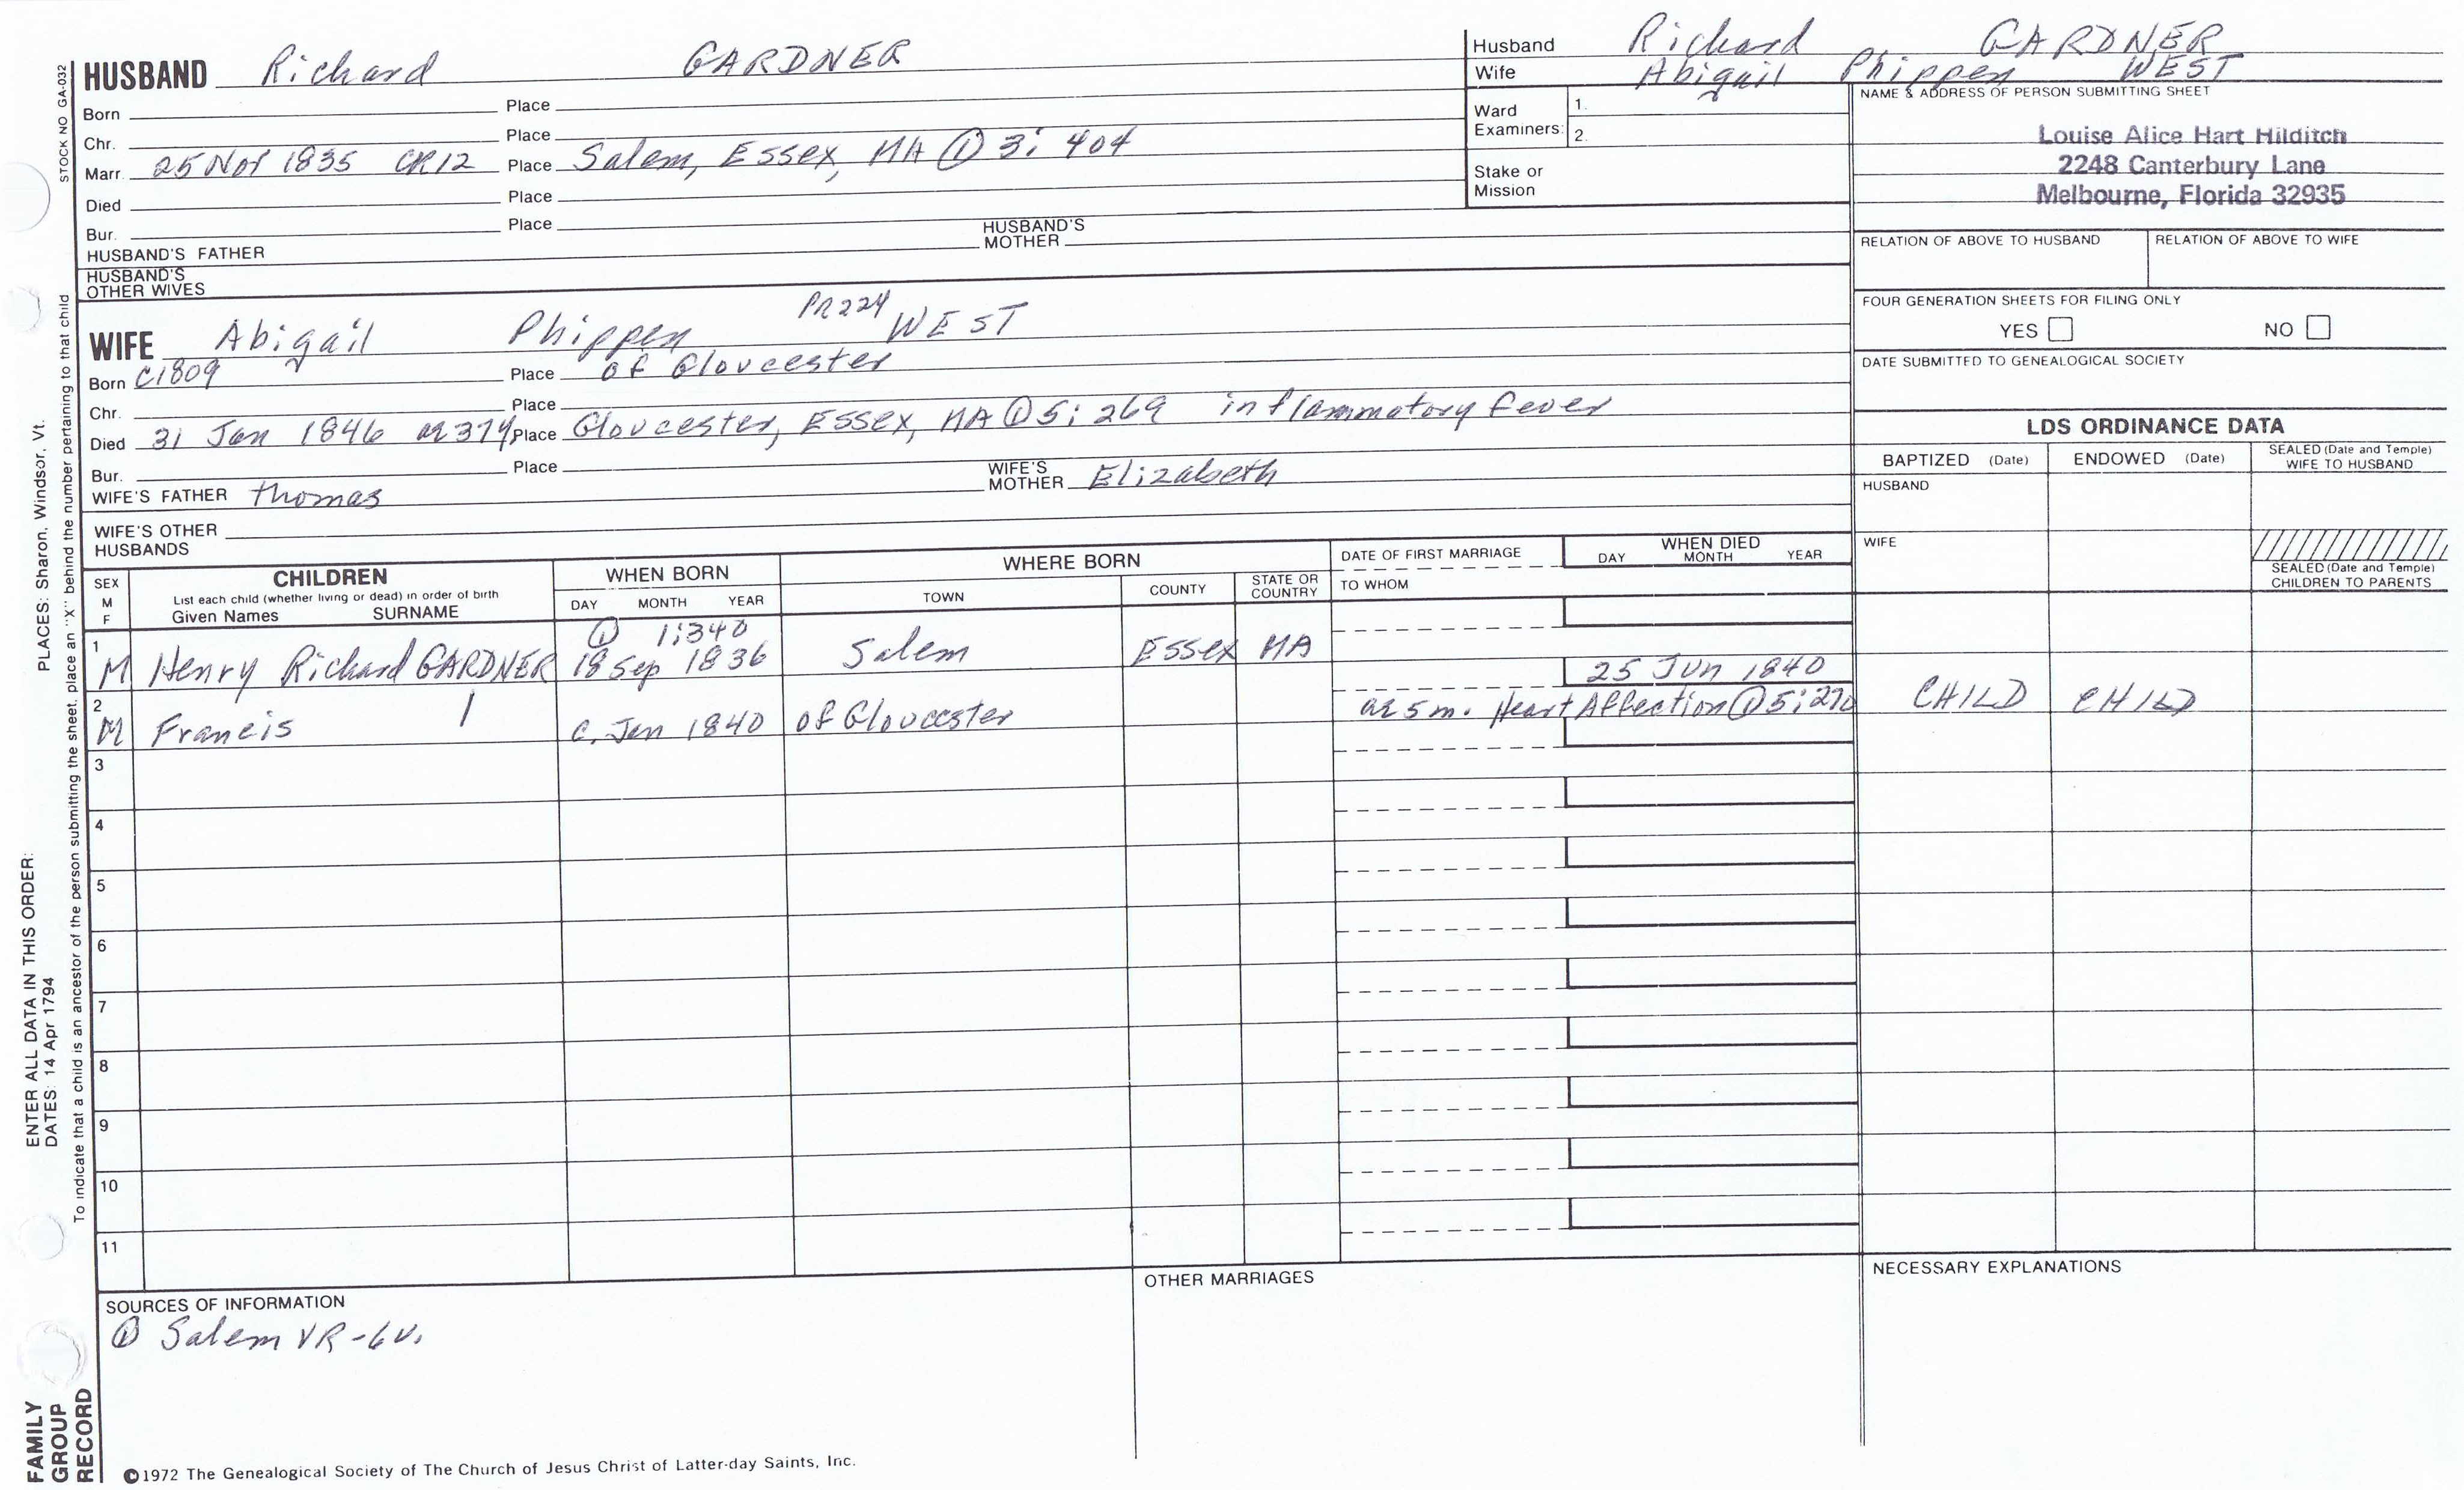 STOCK NO GA-032
HUSBAND Richard GARDNER
Born Place
Chr. Place
Marr. 25 Nov 1835 CR12 Place Salem, Essex, MA ① 3: 404
Died Place
Bur. Place
HUSBAND'S FATHER HUSBAND'S MOTHER
HUSBAND'S OTHER WIVES
Husband Richard GARDNER
Wife Abigail Phippen WEST
Ward Examiners: 1.
2.
Stake or Mission
NAME & ADDRESS OF PERSON SUBMITTING SHEET
Louise Alice Hart Hilditch
2248 Canterbury Lane
Melbourne, Florida 32935
RELATION OF ABOVE TO HUSBAND RELATION OF ABOVE TO WIFE
FOUR GENERATION SHEETS FOR FILING ONLY
YES NO
DATE SUBMITTED TO GENEALOGICAL SOCIETY
PR224
WIFE Abigail Phippen WEST
Born c1809 Place of Gloucester
Chr. Place
Died 31 Jan 1846 ae 37y Place Gloucester, Essex, MA ① 5: 269 inflammatory fever
Bur. Place
WIFE'S FATHER Thomas WIFE'S MOTHER Elizabeth
WIFE'S OTHER HUSBANDS
LDS ORDINANCE DATA
BAPTIZED (Date) ENDOWED (Date) SEALED (Date and Temple) WIFE TO HUSBAND
HUSBAND
WIFE
SEALED (Date and Temple) CHILDREN TO PARENTS
SEX M F
CHILDREN
List each child (whether living or dead) in order of birth
Given Names SURNAME
WHEN BORN
DAY MONTH YEAR
WHERE BORN
TOWN COUNTY STATE OR COUNTRY
DATE OF FIRST MARRIAGE
TO WHOM
WHEN DIED
DAY MONTH YEAR
① 1:340
1 M Henry Richard GARDNER 18 Sep 1836 Salem Essex MA
25 Jun 1840
2 M Francis c. Jan 1840 of Gloucester ae 5m. Heart Affection ① 5:270 CHILD CHILD
3
4
5
6
7
8
9
10
11
SOURCES OF INFORMATION
① Salem VR-6v.
OTHER MARRIAGES
NECESSARY EXPLANATIONS
©1972 The Genealogical Society of The Church of Jesus Christ of Latter-day Saints, Inc.
ENTER ALL DATA IN THIS ORDER:
DATES: 14 Apr 1794 PLACES: Sharon, Windsor, Vt.
To indicate that a child is an ancestor of the person submitting the sheet, place an "X" behind the number pertaining to that child
FAMILY
GROUP
RECORD